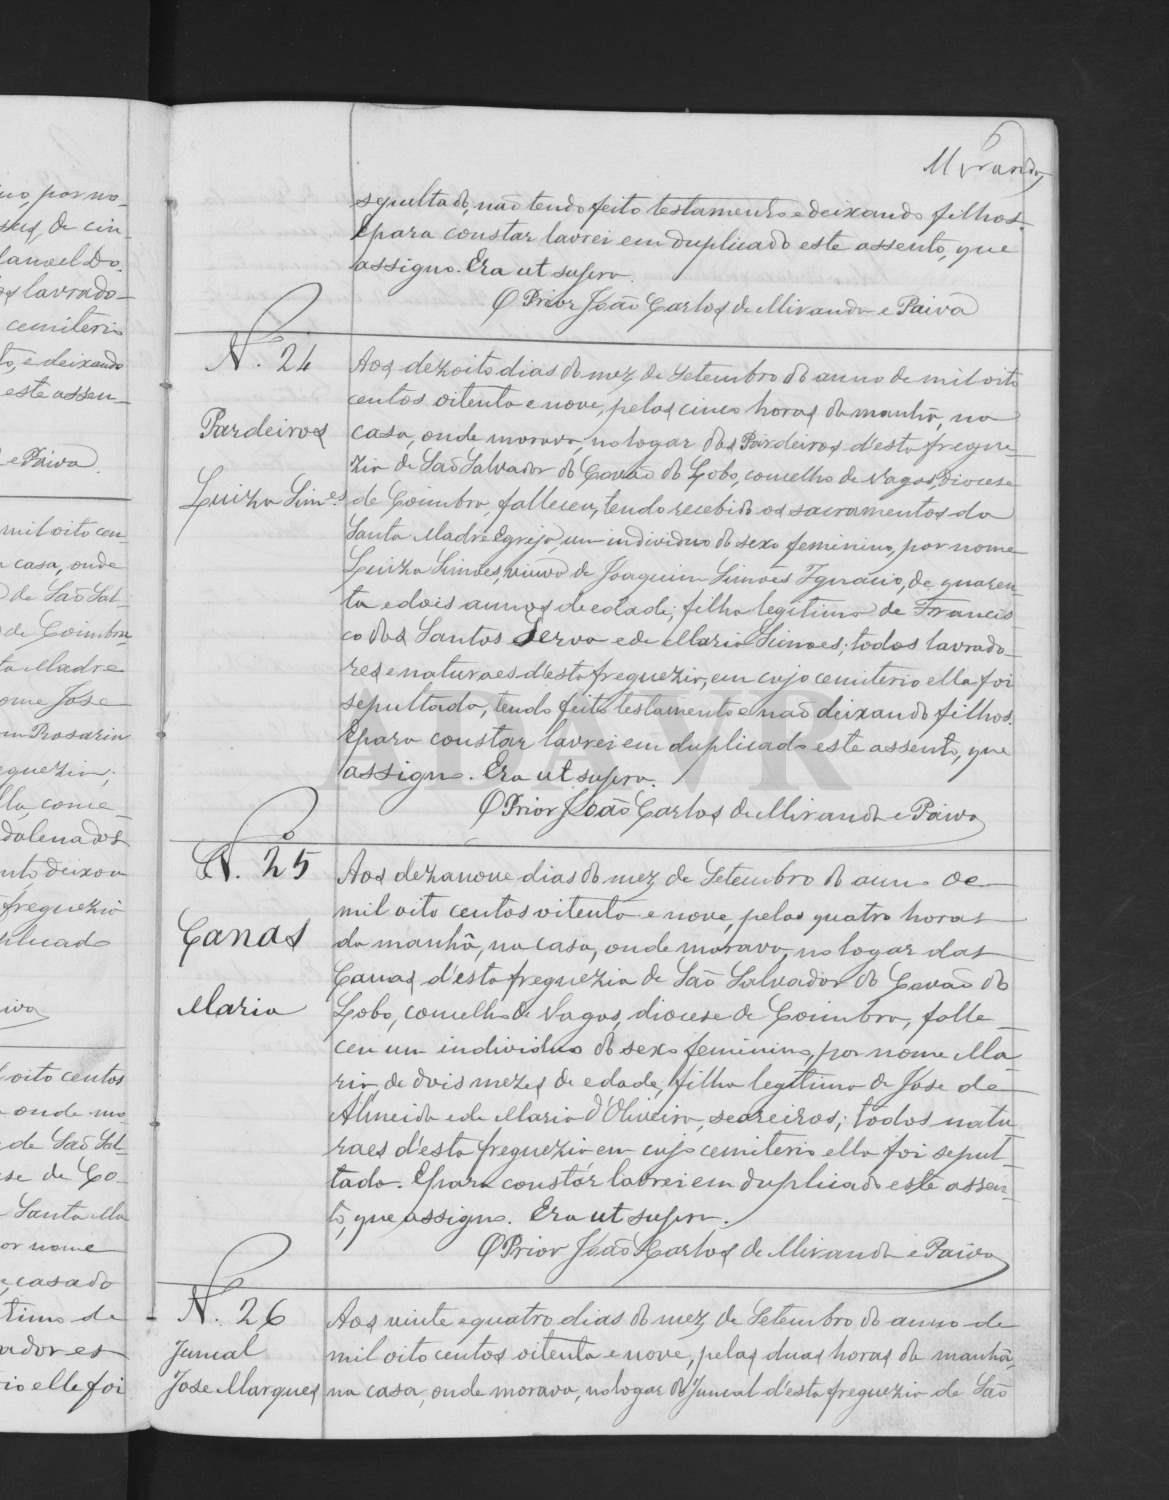 6
Miranda
sepultado, não tendo feito testamento e deixando filhos.
E para constar lavrei em duplicado este assento, que
assigno. Era ut supra.
O Prior João Carlos de Miranda e Paiva
N.º 24
Pardeiros
Luiza Sim.es
Aos dezoito dias do mez de Setembro do anno de mil oito
centos oitenta e nove, pelas cinco horas da manhã, na
casa, onde morava, no logar dos Pardeiros d'esta fregue-
zia de São Salvador do Covão do Lobo, concelho de Vagos, diocese
de Coimbra, falleceu, tendo recebido os sacramentos da
Santa Madre Egreja, um individuo do sexo feminino, por nome
Luiza Simões, viuva de Joaquim Simões Ignacio, de quaren-
ta e dois annos de edade, filha legitima de Francis-
co dos Santos Servo e de Maria Simoes; todos lavrado-
res e naturaes d'esta freguezia, em cujo cemiterio ella foi
sepultada, tendo feito testamento e não deixando filhos.
E para constar lavrei em duplicado este assento, que
assigno. Era ut supra.
O Prior João Carlos de Miranda e Paiva
N.º 25
Canas
Maria
Aos dezanove dias do mez de Setembro do anno de
mil oito centos oitenta e nove, pelas quatro horas
da manhã, na casa, onde morava, no logar das
Canas d'esta freguezia de São Salvador do Covão do
Lobo, concelho de Vagos, diocese de Coimbra, falle-
ceu um individuo do sexo feminino, por nome Ma-
ria, de dois mezes de edade, filha legitima de Jose de
Almeida e de Maria d'Oliveira, seareiros; todos natu-
raes d'esta freguezia em cujo cemiterio ella foi sepul-
tada. E para constár lavrei em duplicado este assen-
to, que assigno. Era ut supra.
O Prior João Carlos de Miranda e Paiva
N.º 26
Juncal
Jose Marques
Aos vinte e quatro dias do mez de Setembro do anno de
mil oito centos oitenta e nove, pelas duas horas da manhã,
na casa, onde morava, no logar do Juncal d'esta freguezia de São
ADAVR